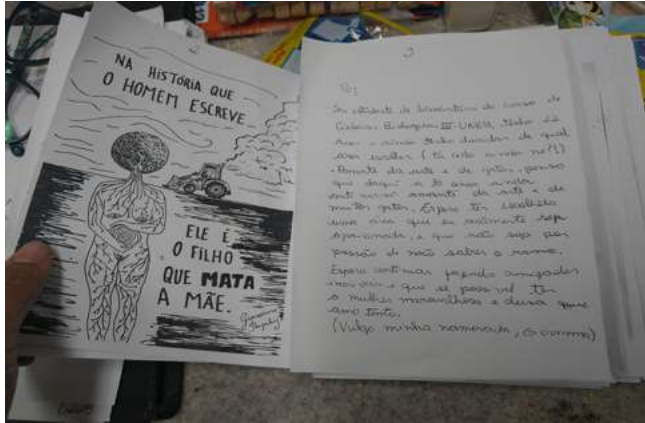 NA HISTÓRIA QUE
O HOMEM ESCREVE
ELE É
O FILHO
QUE MATA
A MÃE.
3
Sou estudante de licenciatura do curso de
Ciências Biológicas UNEB, tenho
anos e ainda tenho dúvidas de qual
área escolher (tá cedo ainda né?!)
Amante da arte e de gatos, penso
que daqui a 10 anos ainda
amante da arte e de
muitos gatos. Espero ter escolhido
uma área que eu realmente seja
apaixonada, e que não seja por
pressão de não saber o rumo.
Espero continuar fazendo amizades
e que se possível ter
a mulher maravilhosa e deusa que
amo tanto.
(Vulgo minha namorada, Giovanna)